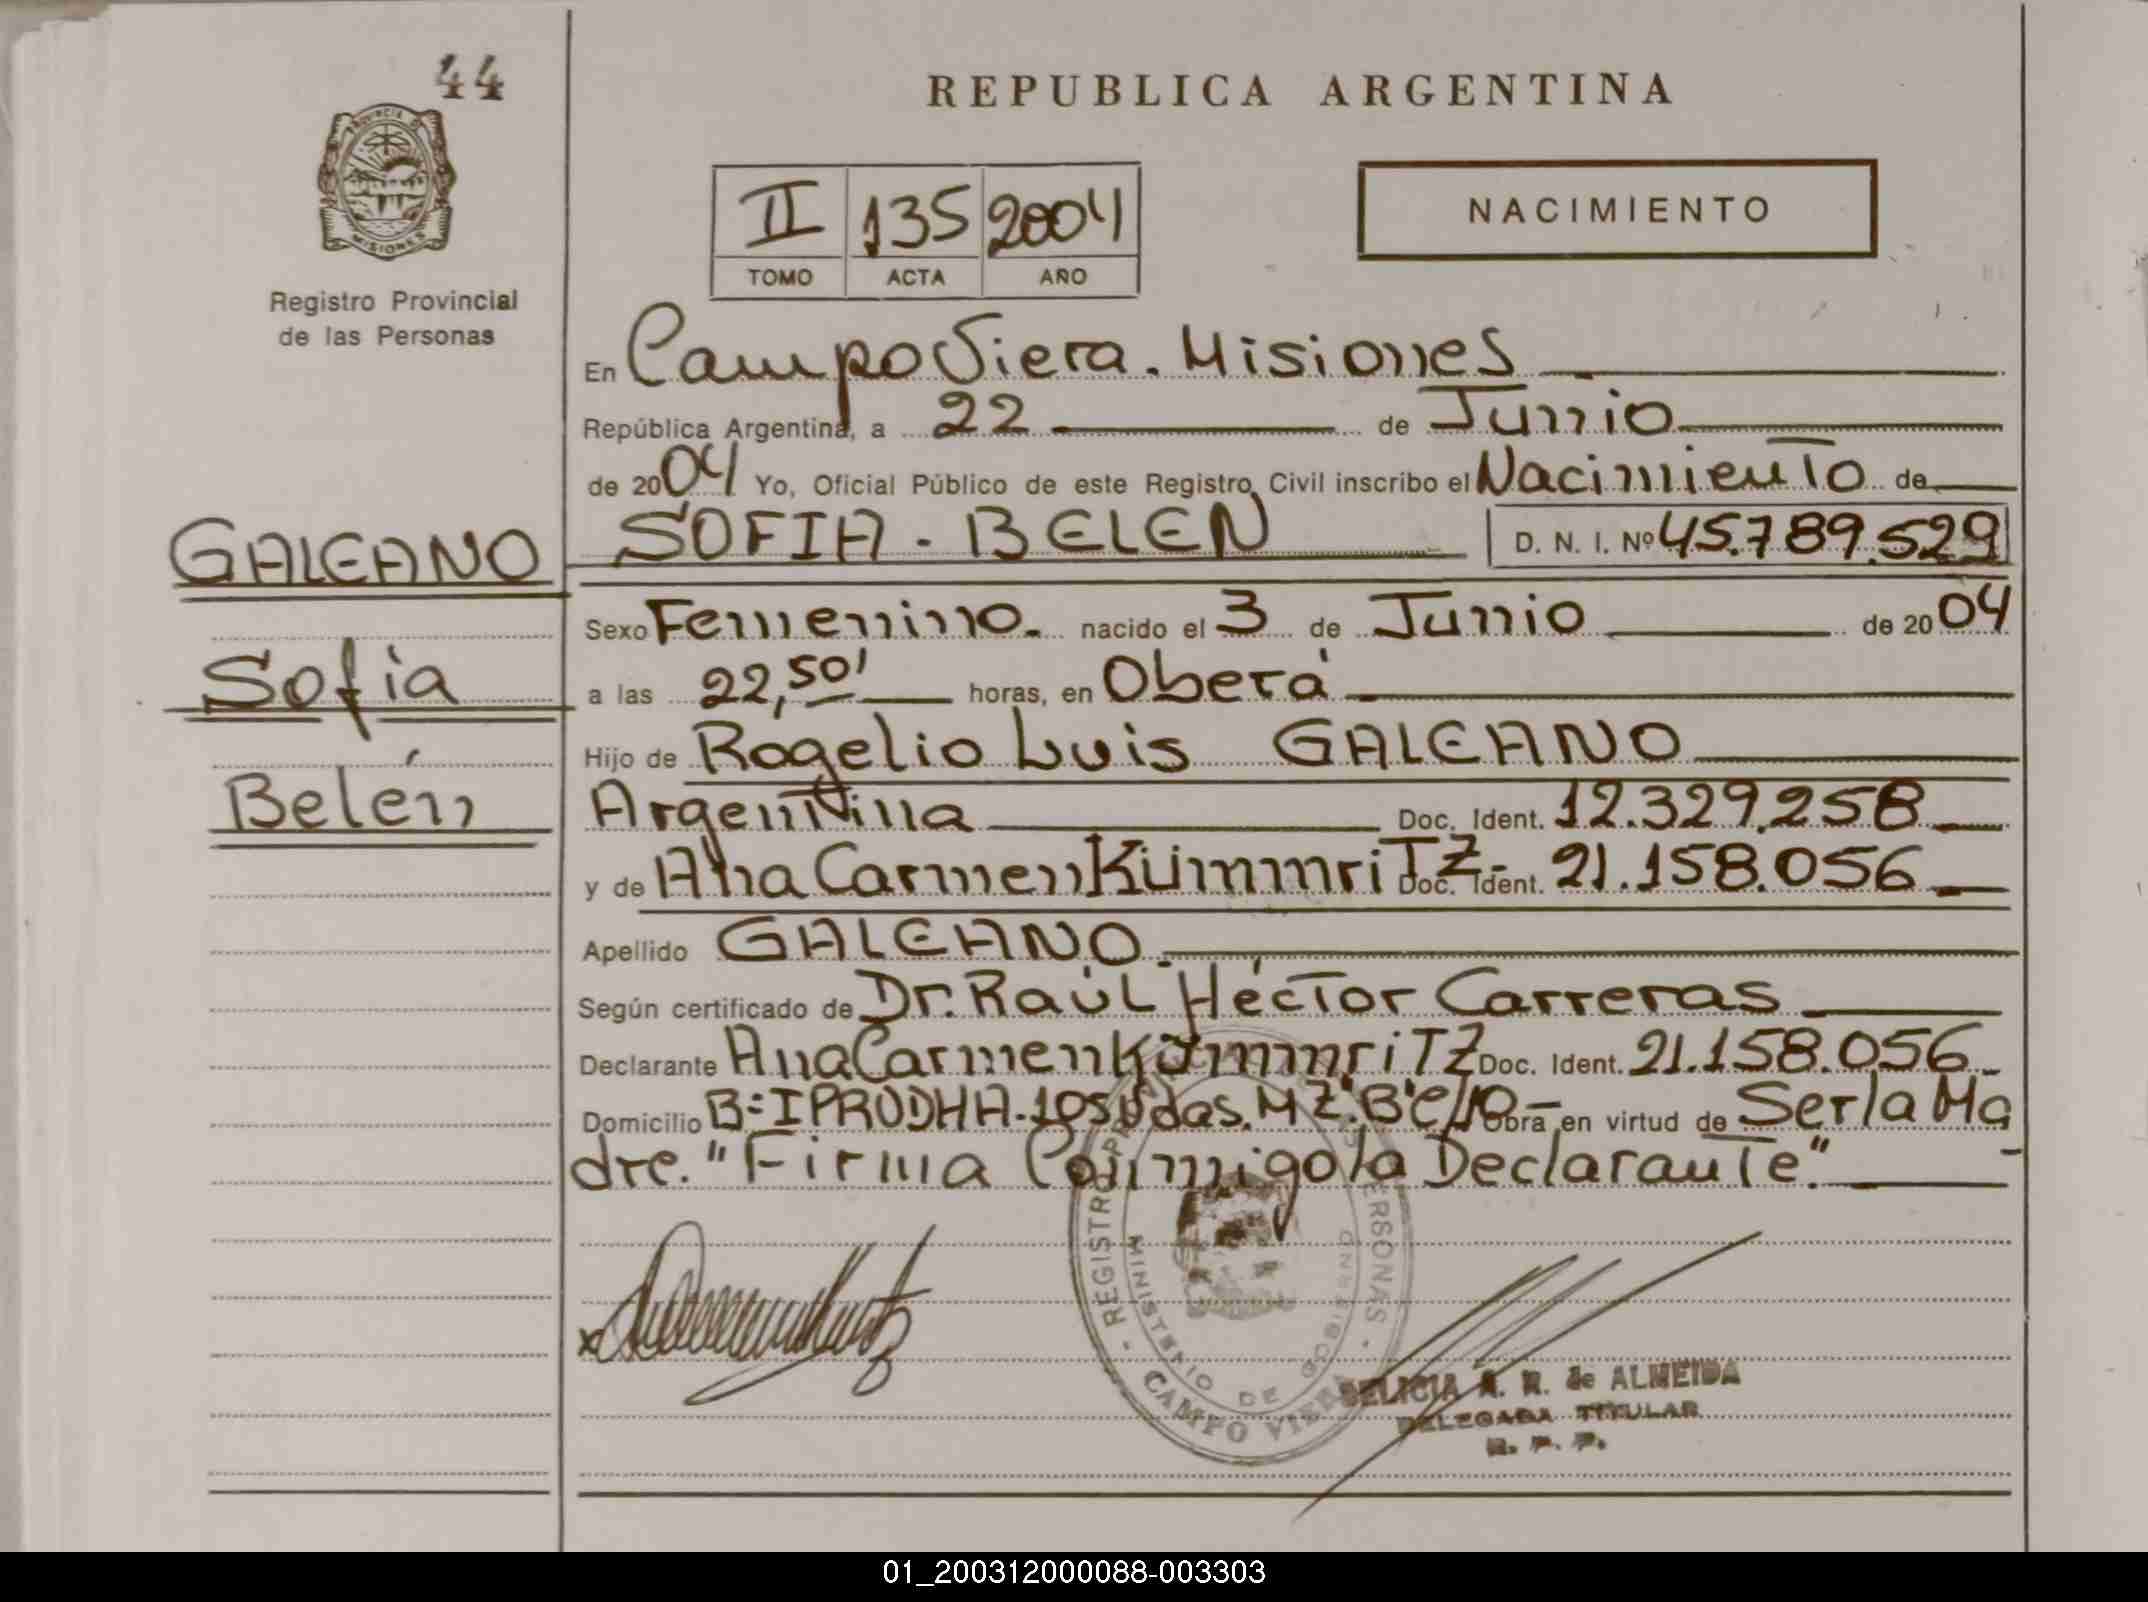 44
PROVINCIA DE
MISIONES
Registro Provincial
de las Personas
REPUBLICA ARGENTINA
II 135 2004
TOMO ACTA AÑO
NACIMIENTO
En Campo Viera. Misiones
República Argentina, a 22 de Junio
de 2004 Yo, Oficial Público de este Registro Civil inscribo el Nacimiento de
GALEANO
SOFIA - BELEN D. N. I. Nº 45.789.529
Sexo Femenino. nacido el 3 de Junio de 2004
Sofía
a las 22,50' horas, en Oberá
Hijo de Rogelio Luis GALEANO
Belén
Argentina Doc. Ident. 12.329.258
y de Ana Carmen KümmriTZ Doc. Ident. 21.158.056
Apellido GALEANO.
Según certificado de Dr. Raúl Héctor Carreras
Declarante Ana Carmen KümmriTZ Doc. Ident. 21.158.056
Domicilio B=IPRODHA-105 Vdas. MZ."B" Obra en virtud de Ser la Ma
dre. "Firma Conmigo la Declarante".
REGISTRO PERSONAS
MINISTERIO DE GOBIERNO
CAMPO VIERA
DELICIA A. R. de ALMEIDA
DELEGADA TITULAR
R. P. P.
01_200312000088-003303